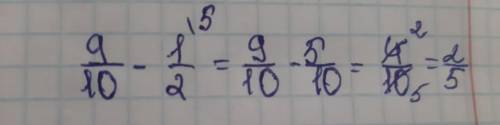 9/10 - 1/2^{\5} = 9/10 - 5/10 = 4̸²/1̸0̸₅ = 2/5